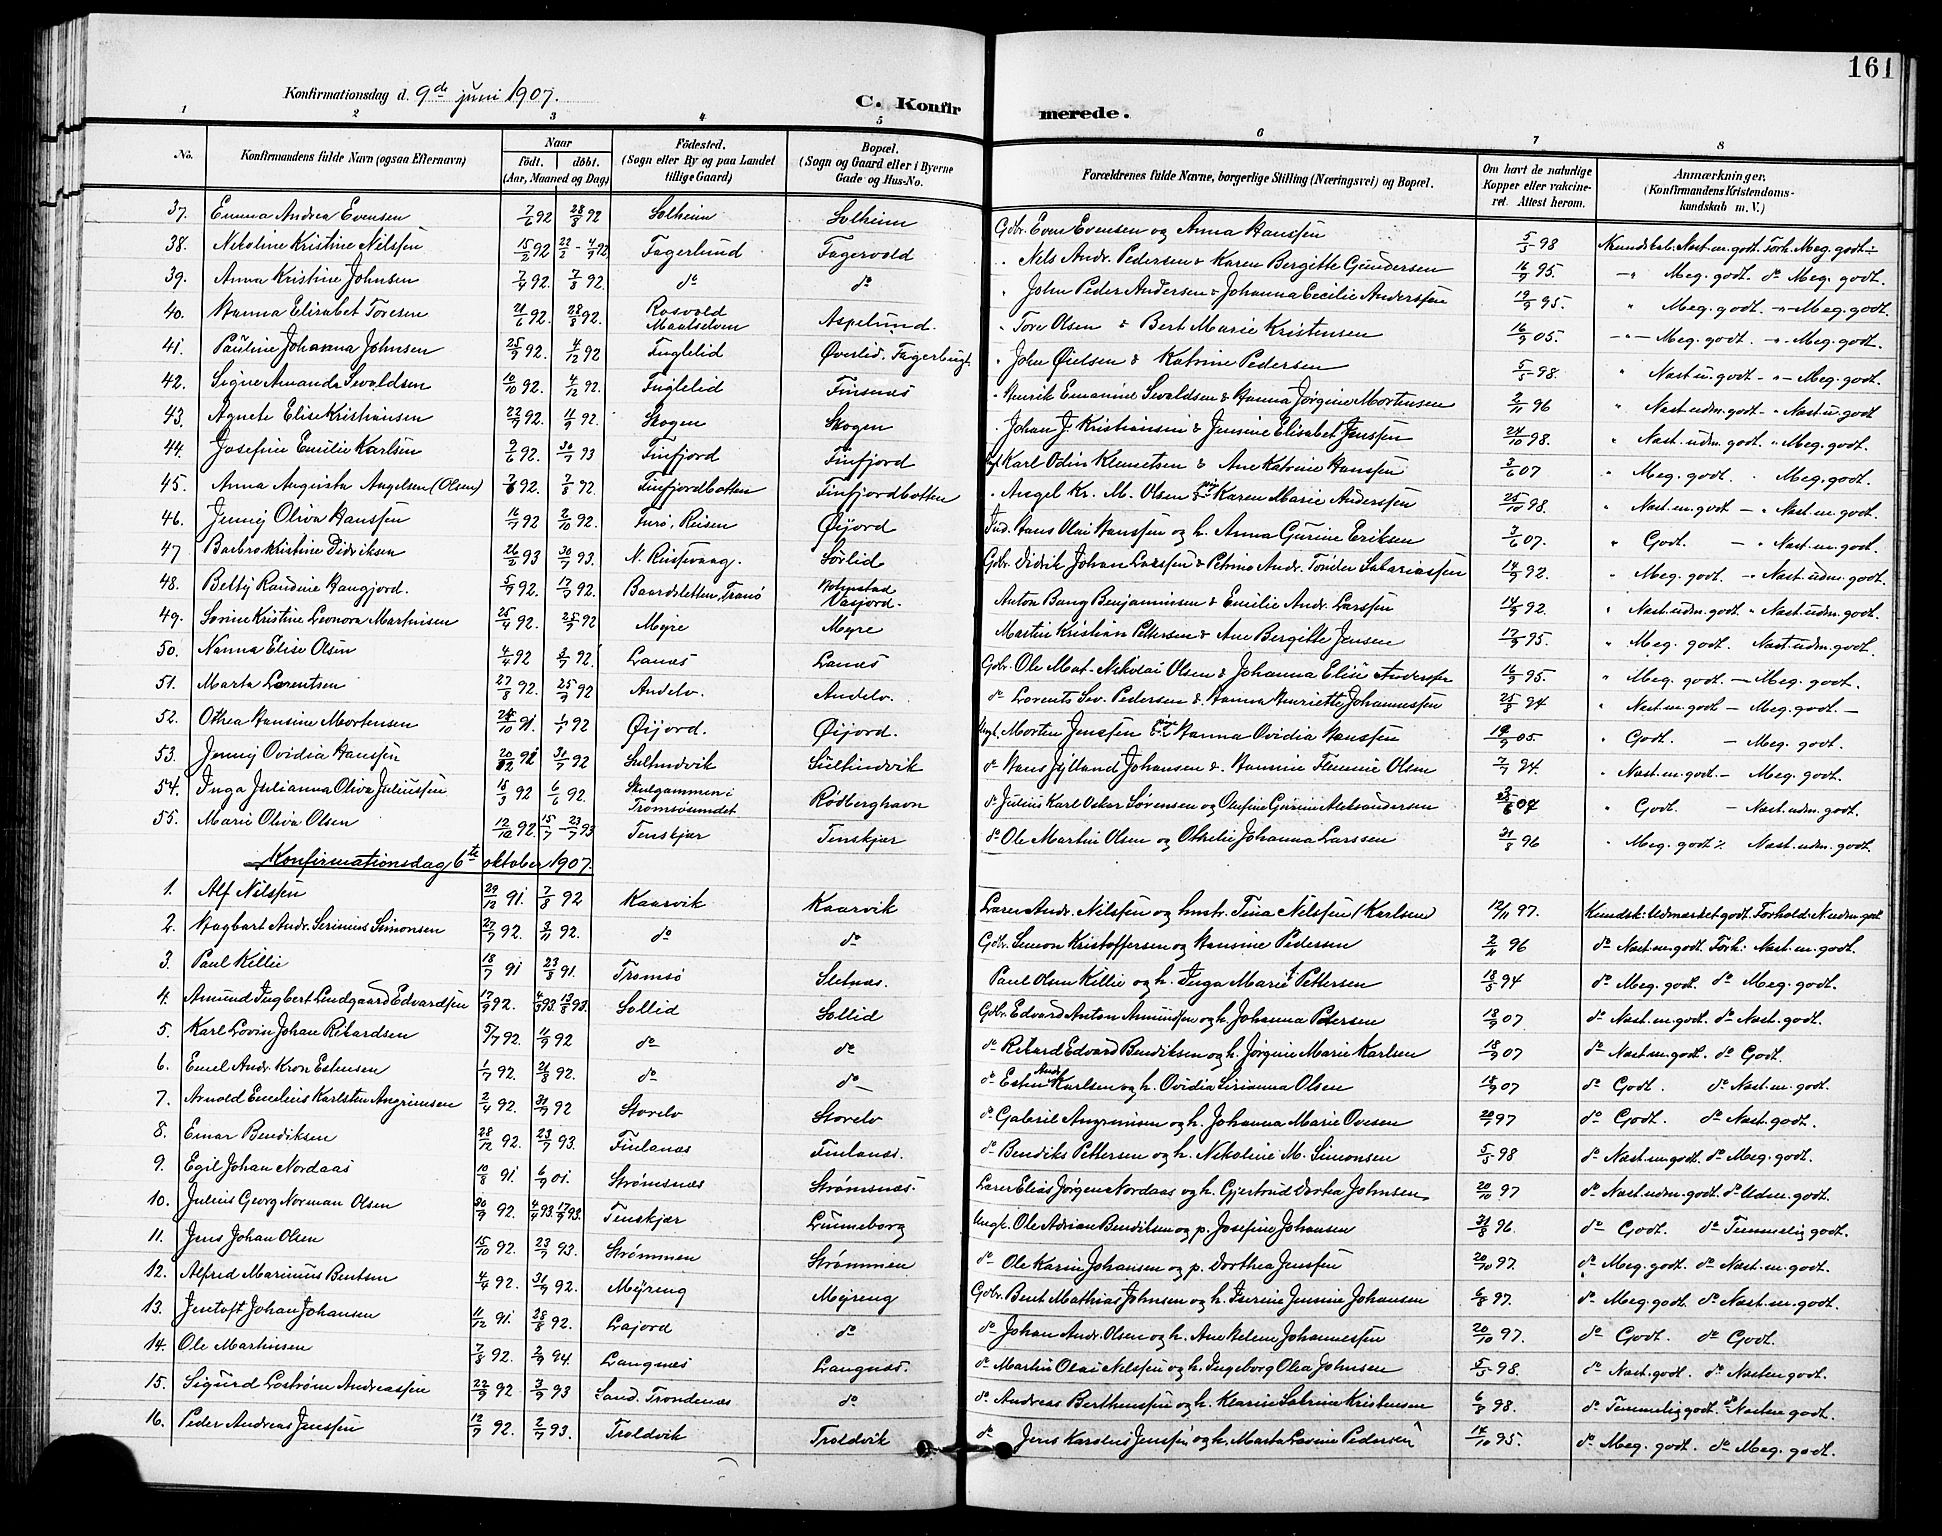 161
Konfirmationsdag d. 9de juni 1907.
C. Konfirmerede.
1 2 3 4 5 6 7 8
No. | Konfirmandens fulde Navn (ogsaa Efternavn) | Naar födt. döbt. (Aar, Maaned og Dag) | Födested. (Sogn eller By og paa Landet tillige Gaard) | Bopæl. (Sogn og Gaard eller i Byerne Gade og Hus-No. | Forældrenes fulde Navne, borgerlige Stilling (Næringsvei) og Bopæl. | Om havt de naturlige Kopper eller vakcineret. Attest herom. | Anmærkninger. (Konfirmandens Kristendomskundskab m. V.)
37. Emma Andrea Evensen 7/6 92 28/8 92 Solheim Solheim Gbr. Even Evensen og Anna Hanssen 5/5 98 Kundskab: Nast. m. godt. Forh. Meg. godt
38. Nikoline Kristine Nilssen 15/2 92 22/2 - 4/9 92 Fagerlund Fagervold " Nels Andr. Pedersen & Karen Bergitte Gundersen 16/9 95. " Meg. godt do Meg. godt.
39. Anna Kristine Johnsen 7/4 92. 7/8 92. do do " John Peder Andersen & Johanna Cecilie Anderssen 19/9 95. " Meg. godt. " Meg. godt.
40. Hanna Elisabet Toresen 21/6 92. 28/8 92. Rosvold Maalselven Aspelund. " Tore Olsen & Bert Marie Kristensen 16/9 05. " Meg. godt. " Meg. godt.
41. Pauline Johanna Johnsen 25/9 92. 4/12 92 Fuglelid Øverlid. Fagerbugt. " John Øielsen & Katrine Pedersen 5/5 98. " Nast. u. godt " Meg. godt.
42. Signe Amanda Sevaldsen 10/10 92. 4/12 92. Fuglelid Finsnæs " Henrik Emanuel Sevaldsen & Hanna Jørgine Mortensen 2/11 96 " Nast. udm. godt " Nast. u. godt
43. Agnete Elise Kristiansen 22/7 92. 11/9 92. Skogen Skogen " Johan J. Kristiansen & Jensine Elisabet Jenssen 24/10 98. " Nast. udm. godt. " Meg. godt.
44. Josefine Emilie Karlsen 9/6 92. 30/7 93 Finfjord Finfjord Karl Odin Klemetsen & Ane Katrine Hanssen 3/6 07 " Meg. godt. " Meg. godt.
45. Anna Augusta Angelsen (Olsen) 7/6 92. 7/8 92. Finfjordbotten Finfjordbotten " Angel Kr. M. Olsen & pige Karen Marie Anderssen 25/10 98. " Nast. m. godt " Nast. m. godt.
46. Jenny Oliva Hanssen 16/7 92 2/10 92. Furö, Reisen Øijord Ind. Hans Olai Hanssen og h. Anna Gurine Eriksen 7/6 07. " Godt. " Nast. m. godt.
47 Barbro Kristine Didriksen 26/2 93 30/7 93. N. Russevaag. Sörlid Gbr. Didrik Johan Larssen & Petrine Andr. Tönder Sakariassen 14/9 92. " Meg. godt " Nast. udm. godt.
48. Betty Randine Haugjord. 5/7 92. 17/7 92. Baardsletten, Tranö Holmstad Vasjord. Anton Bang Benjaminsen & Emilie Andr. Larssen 14/9 92. " Nast. udm. godt. " Nast. udm. godt.
49. Sorine Kristine Leonora Martinsen 25/4 92. 25/9 92 Myre Myre Martin Kristian Pettersen & Ane Bergitte Jensen 17/9 95 " Meg. godt. Nast. udm. godt.
50. Nanna Elise Olsen 4/4 92 3/7 92. Lanæs Lanæs Gbr. Ole Mat. Nikolai Olsen & Johanna Elise Anderssen 16/9 95. " Meg. godt — Meg. godt.
51. Marta Lorentsen 27/8 92. 25/9 92 Andelv. Andelv. do Lorents Sev. Pedersen & Hanna Henriette Johannessen 25/8 94 " Nast. m. godt — Meg. godt.
52. Othea Hansine Mortensen 24/10 91. 1/7 92 Øijord. Øijord. Ungk. Morten Jenssen & pige Hanna Ovidia Hanssen 19/9 05 " Godt. — Meg. godt.
53. Jenny Ovidia Hanssen 20/12 91 31/7 92 Sultindvik Sultindvik do Hans Jylland Johansen & Hannine Flemine Olsen 7/7 94. " Nast. m. godt — Meg. godt.
54. Inga Julianna Oliva Juliussen 15/3 92 6/6 92. Skulgammen i Tromsösundet Rödberghavn do Julius Karl Oskar Sørensen og Olufine Gurine Aleksandersen 3/6 07 " Godt — Nast. udm. godt.
55. Marie Oliva Olsen 12/10 92. 15/7 - 23/7 93 Tenskjær Tenskjær do Ole Martin Olsen og Othelie Johanna Larssen 31/8 96 " Meg. godt % Nast. udm. godt.
Konfirmationsdag 6te oktober 1907.
1. Alf Nilssen 29/12 91. 7/8 92 Kaarvik Kaarvik Lærer Andr. Nilssen og hustr. Tina Nilssen (Karlsen) 12/11 97. Kundsk: Udmærket godt. Forhold: N. udm. godt
2. Hagbart Andr. Serinius Simonsen 27/7 92. 3/11 92. do do Gbr. Simon Kristoffersen og Hansine Pedersen 2/11 96 do Nast. m. godt. Forh: Nast. m. godt.
3. Paul Killie 18/7 91 23/8 91. Tromsö Sletnæs. Paul Olsen Killie og h. Inga Marie f. Pettersen 18/5 94 do Meg. godt. do Meg. godt.
4. Amund Ingbert Lundgaard Edvardsen 17/9 92. 4/9 93. 13/8 93. Sollid Sollid Gbr. Edvard Anton Amundsen og h. Johanna Petersen 18/9 07 do Nast. m. godt. do Nast. godt.
5. Karl Lovin Johan Rikardsen 5/7 92. 11/9 92 do do do Rikard Edvard Bendiksen og h. Jørgine Marie Karlsen 18/9 07 do Nast. m. godt. do Godt.
6. Emel Andr. Kron Estensen 1/7 92. 21/8 92. do do do Esten Andr. Karlsen og h. Ovidia Sirianna Olsen 18/9 07 do Godt. do Nast. m. godt.
7. Arnold Emelius Karlsten Angrimsen 2/4 92. 31/7 92 Storelv Storelv do Gabriel Angrimsen og h. Johanna Marie Ovesen 20/9 97 do Godt. do Nast. godt.
8. Einar Bendiksen 28/12 92. 23/7 93. Finlanæs Finlanæs. do Bendiks Pettersen og h. Nikoline M. Simonsen 5/5 98 do Nast. m. godt do Meg. godt.
9. Egil Johan Nordaas 10/8 91. 6/9 01. Strömsnæs Strömsnæs. Lærer Elias Jørgen Nordaas og h. Gjertrud Dortea Johnsen 20/10 97 do Nast. udm. godt. do Udm. godt.
10. Julius Georg Norman Olsen 30/9 92. 4/4 93. 17/9 93. Tenskjær Lünneborg Ungk. Ole Adrian Bendiksen og p. Josefine Johansen 31/8 96. do Godt do Temmelig godt.
11. Jens Johan Olsen 15/10 92. 23/7 93. Strömmen Strömmen do Ole Karin Johansen og p. Dorthea Jenssen 20/10 97. do Meg. godt. do Nast. m. godt.
12. Alfred Marinius Bentsen 4/4 92. 31/7 92. Mÿreng Myreng Gbr. Bent Mathias Johnsen og h. Iserine Jensine Johansen 6/8 97. do Meg. godt. do Nast. m. godt.
13. Jentoft Johan Johansen 11/12 91. 28/8 92. Lajord do do Johan Andr. Olsen og h. Ane Helene Johannessen 20/10 97. do Godt. do Godt.
14. Ole Martinsen 7/8 92. 2/9 94. Langnæs Langnæs. do Martin Olai Nilssen og h. Ingeborg Olea Johnsen 5/5 98. do Nast. godt. do Nasten godt.
15. Sigurd Lostrøm Andreassen 22/9 92 3/9 93 Sand. Trondenæs do do Andreas Berthenssen og h. Klarise Sabrine Kristensen 6/8 98. do Temmelig godt. do Nasten godt.
16. Peder Andreas Jenssen 12/7 92. 2/7 93. Troldvik Troldvik do Jens Karelius Jenssen og h. Marta Lovine Pedersen 14/10 95. do Meg. godt. do Meg. godt.